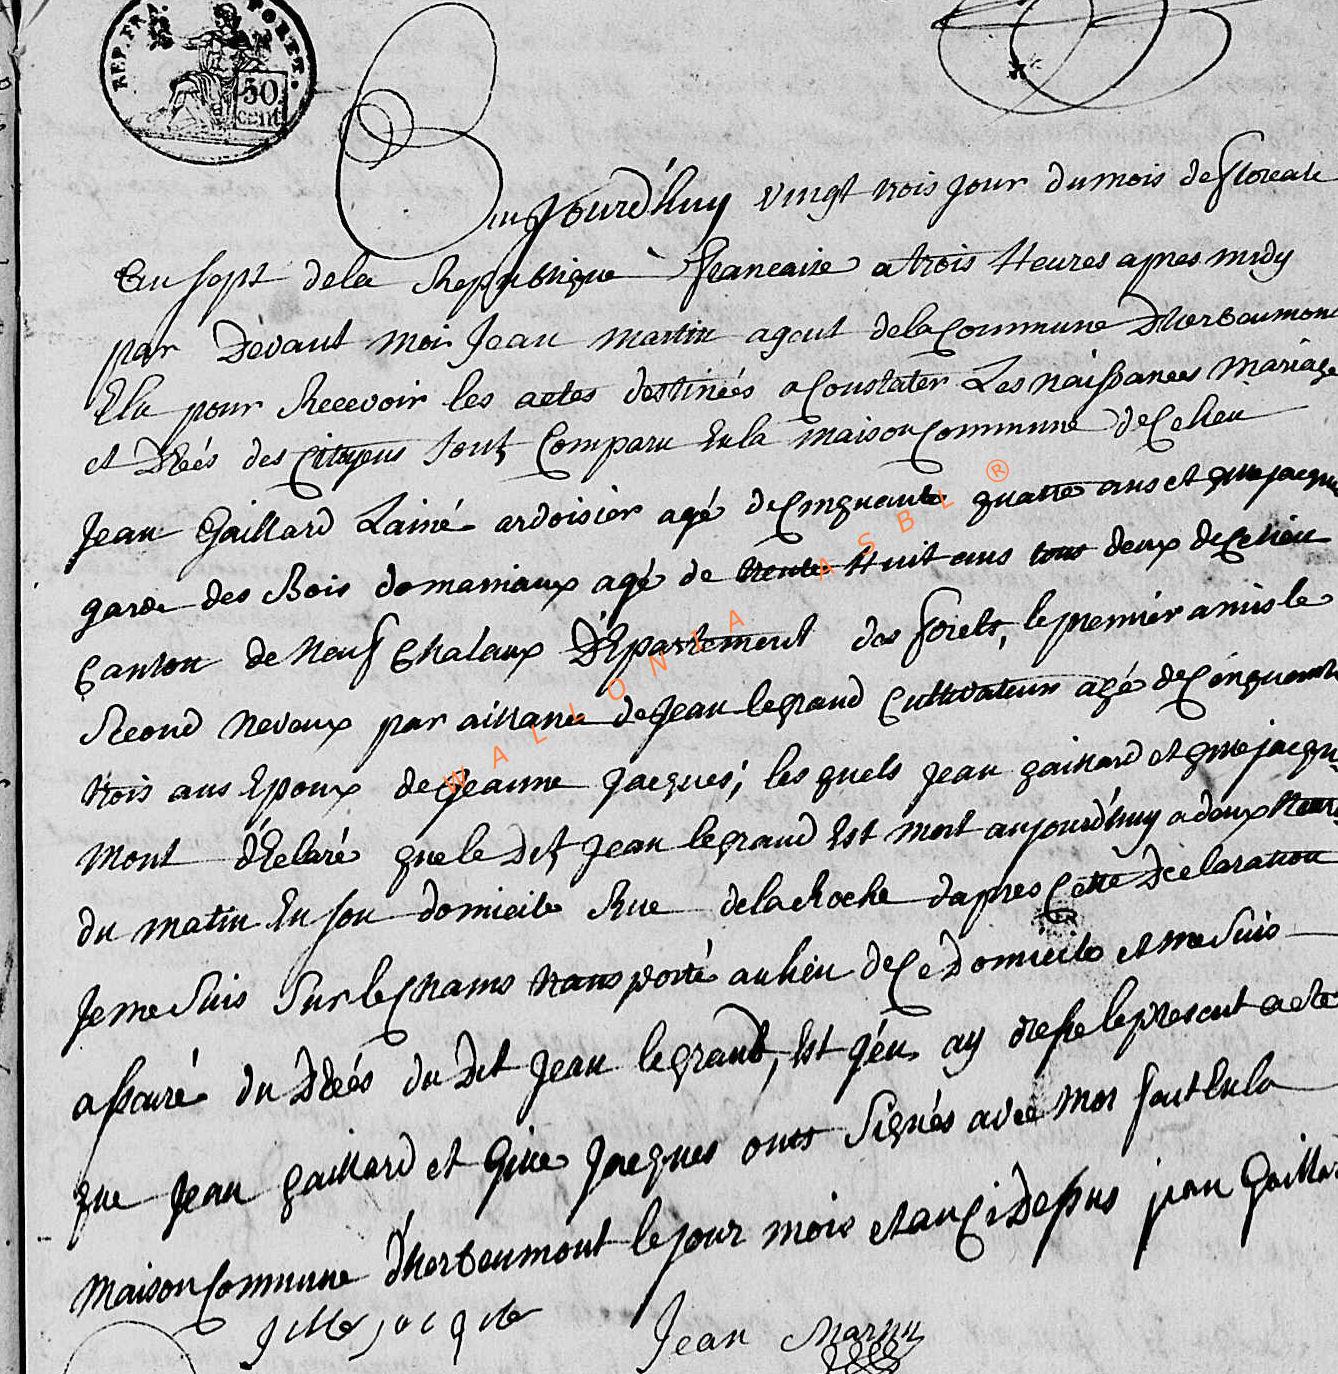 REP. FRA. FORET.
50 cent
Aujourd'huy vingt trois jour du mois de floreale
En sept dela Republique francaise a trois Heures apres midy
par Devant moi Jean Martin agent dela Commune Dherbeumont
Elu pour Recevoir les actes destinées a Constater Les naissances Mariage
et Décés des Citoyens sont Comparu En la maison Commune de Ce lieu
Jean Gaillard Lainé ardoisier agé de Cinquante quatre ans et gille jacque
garde des Bois domaniaux agé de trente Huit ans tous deux de Ce lieu
Canton de Neuf Chataux Département des forets, le premier amis le
Second Neveux par aillance de Jean legrand Cultivateur agé de Cinquante
trois ans Epoux de Jeanne Jacques; les quels Jean gaillard et gille jacque
Mont déclaré que le dit Jean legrand Est mort aujourd'huy a deux Heures
du matin En son domicile Rue dela Roche dapres Cette Déclaration
Je me Suis Sur le Chams transporté au lieu de Ce Domicile et me Suis
assuré du Décés du Dit Jean legrand, Est j'en ay dressé le present acte
que Jean gaillard et Gille Jacques onts Signés avec Moi fait En la
Maison Commune d'herbeumont le jour mois et an Ci Dessus jean Gaillar
gille jacque Jean Martin
WALLONIA ASBL ®